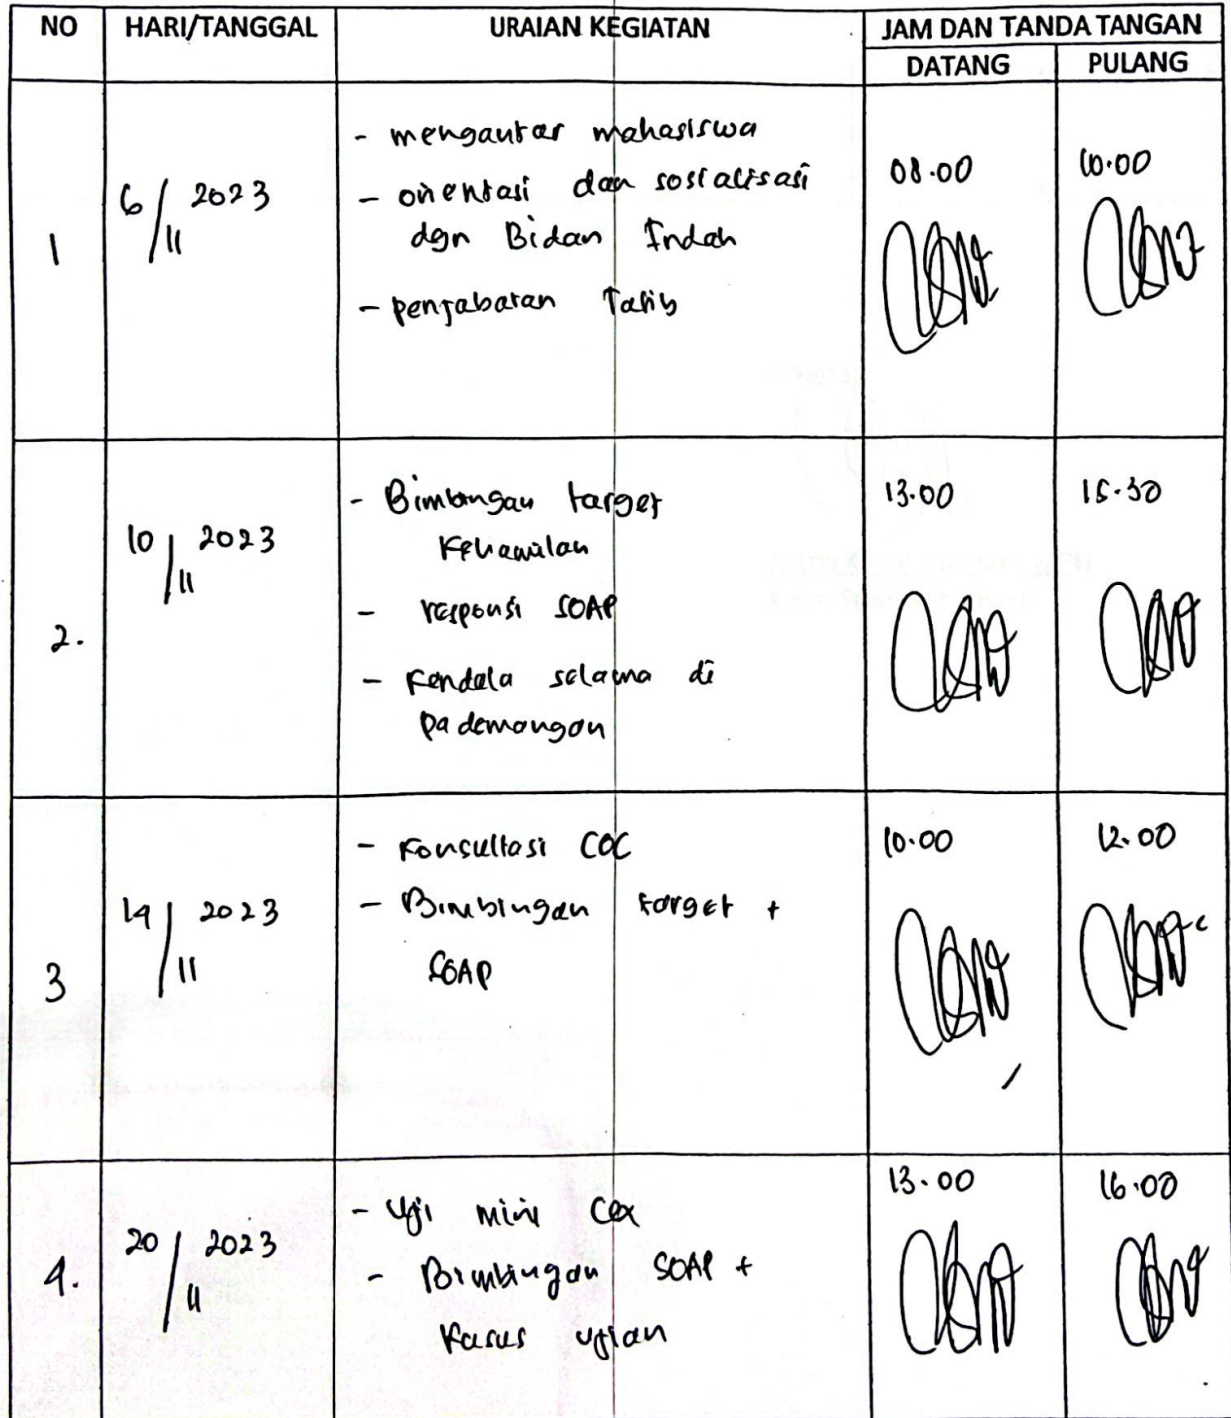 NO HARI/TANGGAL URAIAN KEGIATAN JAM DAN TANDA TANGAN
DATANG PULANG
1 6/11 2023
- mengantar mahasiswa
- orientasi dan sosialisasi
dgn Bidan Indah
- penjabaran Tatib
08.00 10.00
2. 10/11 2023
- Bimbingan target
Kehamilan
- responsi SOAP
- Kendala selama di
pademangan
13.00 15.30
3 14/11 2023
- Konsultasi COC
- Bimbingan target +
SOAP
10.00 12.00
4. 20/11 2023
- Uji mini Cex
- Bimbingan SOAP +
Kasus ujian
13.00 16.00